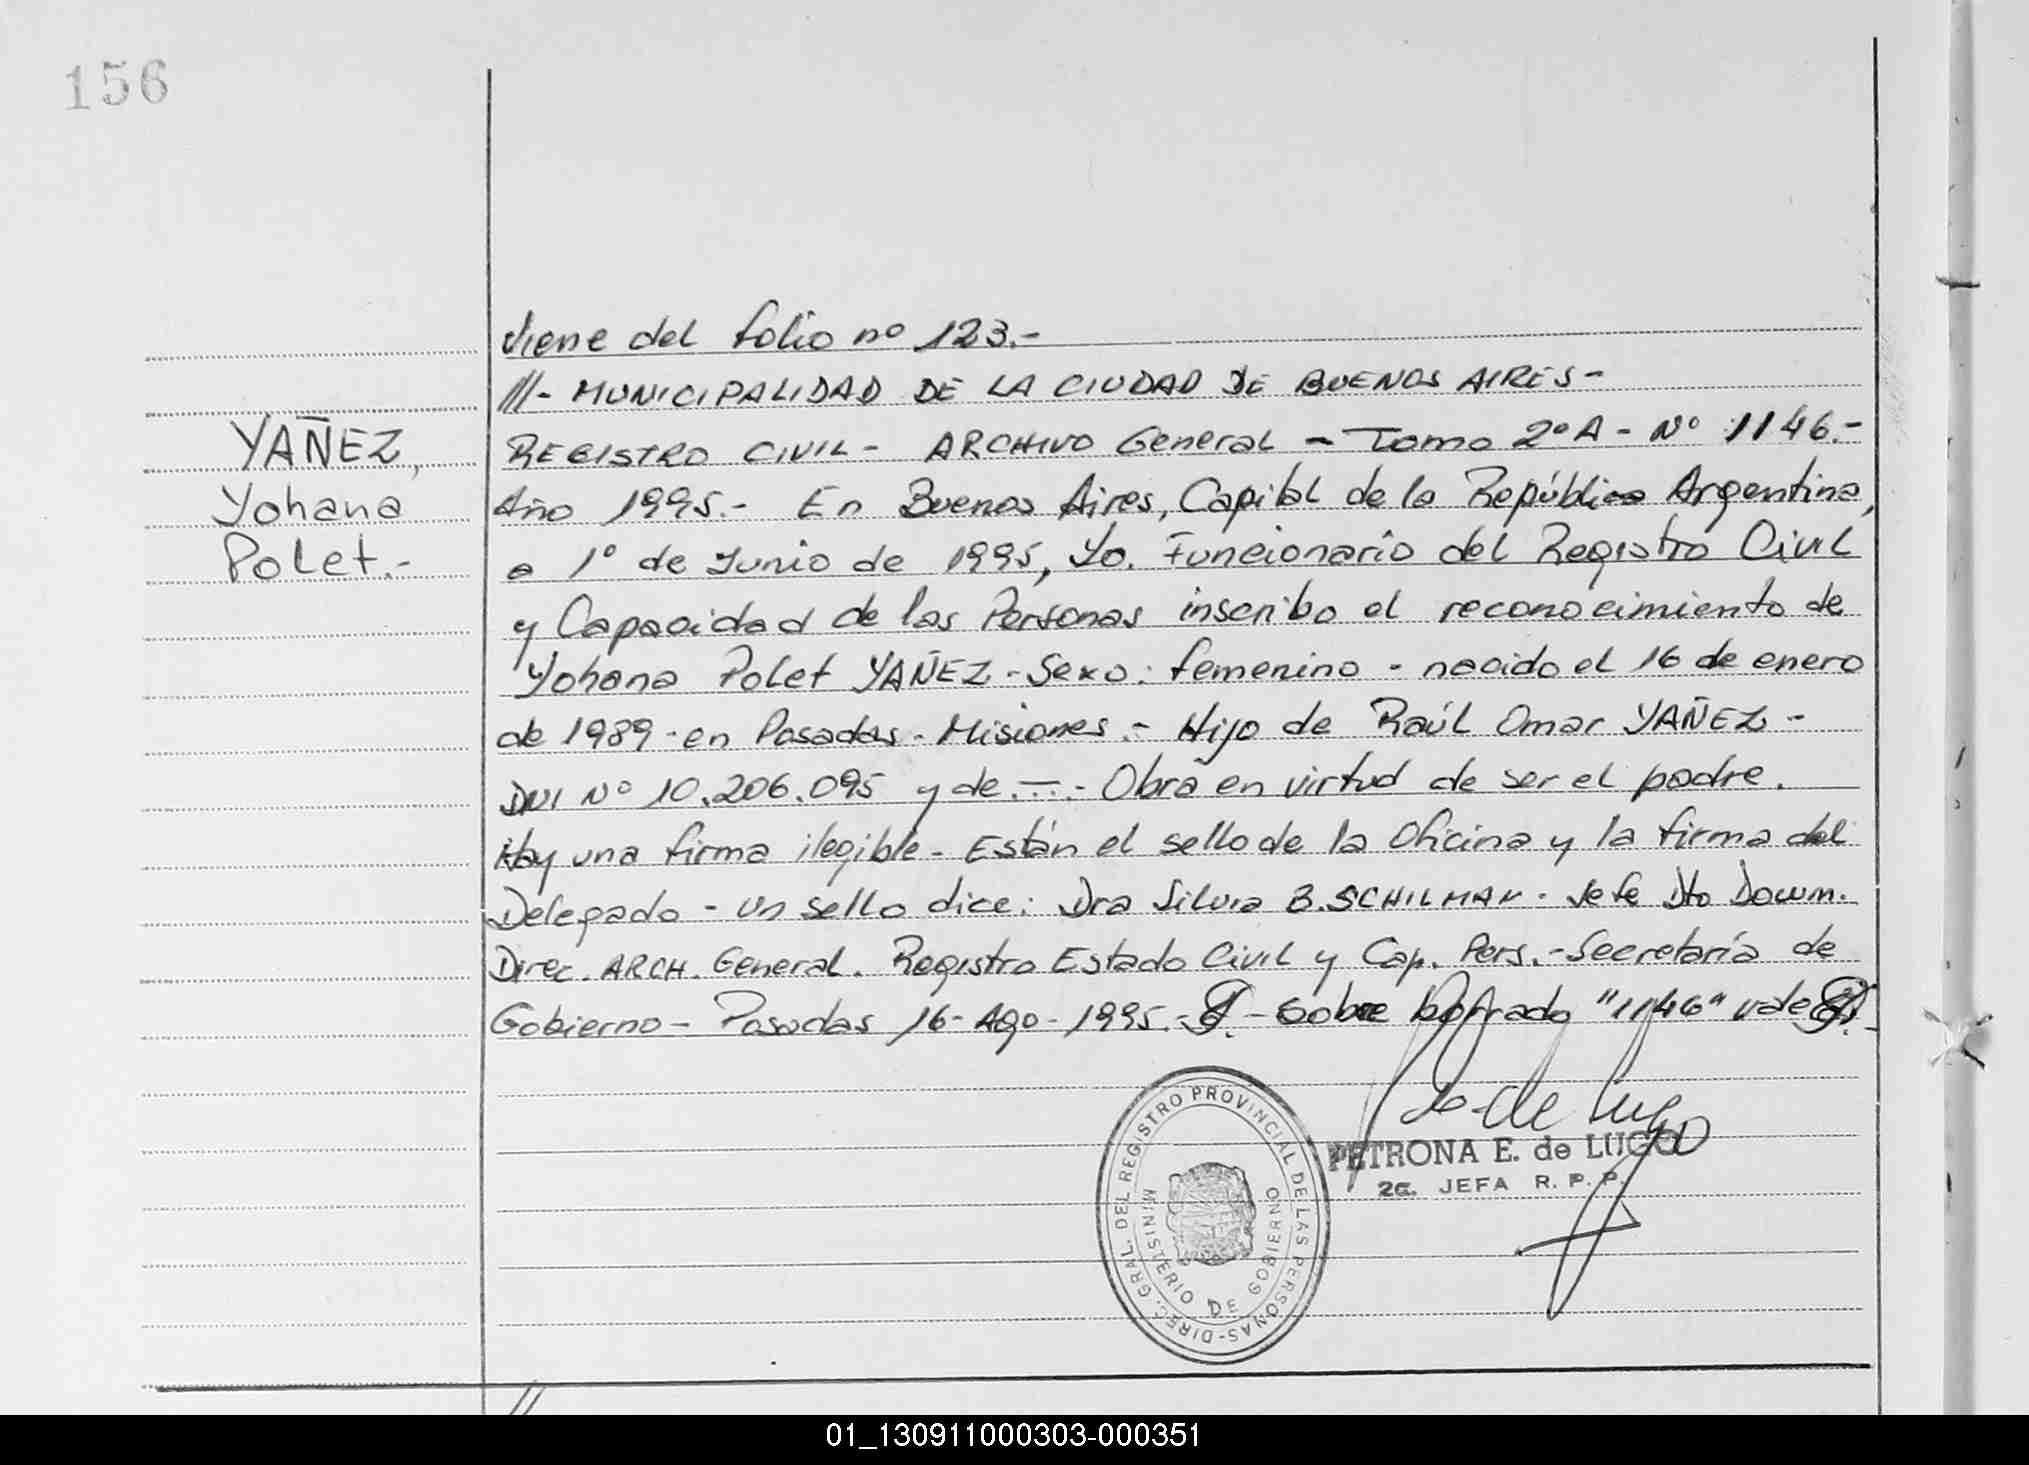 156
Viene del folio nº 123.-
///- MUNICIPALIDAD DE LA CIUDAD DE BUENOS AIRES-
YAÑEZ,
Yohana
Polet.-
REGISTRO CIVIL - ARCHIVO General - Tomo 2º A - Nº 1146.-
Año 1995.- En Buenos Aires, Capital de la República Argentina,
a 1º de Junio de 1995, Yo. Funcionario del Registro Civil
y Capacidad de las Personas inscribo el reconocimiento de
Yohana Polet YAÑEZ - Sexo: femenino - nacido el 16 de enero
de 1989 - en Posadas - Misiones.- Hijo de Raúl Omar YAÑEZ -
DNI Nº 10.206.095 y de.-.- Obra en virtud de ser el padre.
Hay una firma ilegible - Están el sello de la Oficina y la firma del
Delegado - un sello dice: Dra Silvia B. SCHILMAN - Jefe Dto Docum.
Direc. ARCH. General. Registro Estado Civil y Cap. Pers.- Secretaría de
Gobierno - Posadas 16 - Ago - 1995.- - Sobre borrado "1146" vale
de Lugo
PETRONA E. de LUGO
2a. JEFA R. P. P.
DIREC. GRAL. DEL REGISTRO PROVINCIAL DE LAS PERSONAS-
MINISTERIO DE GOBIERNO
01_130911000303-000351